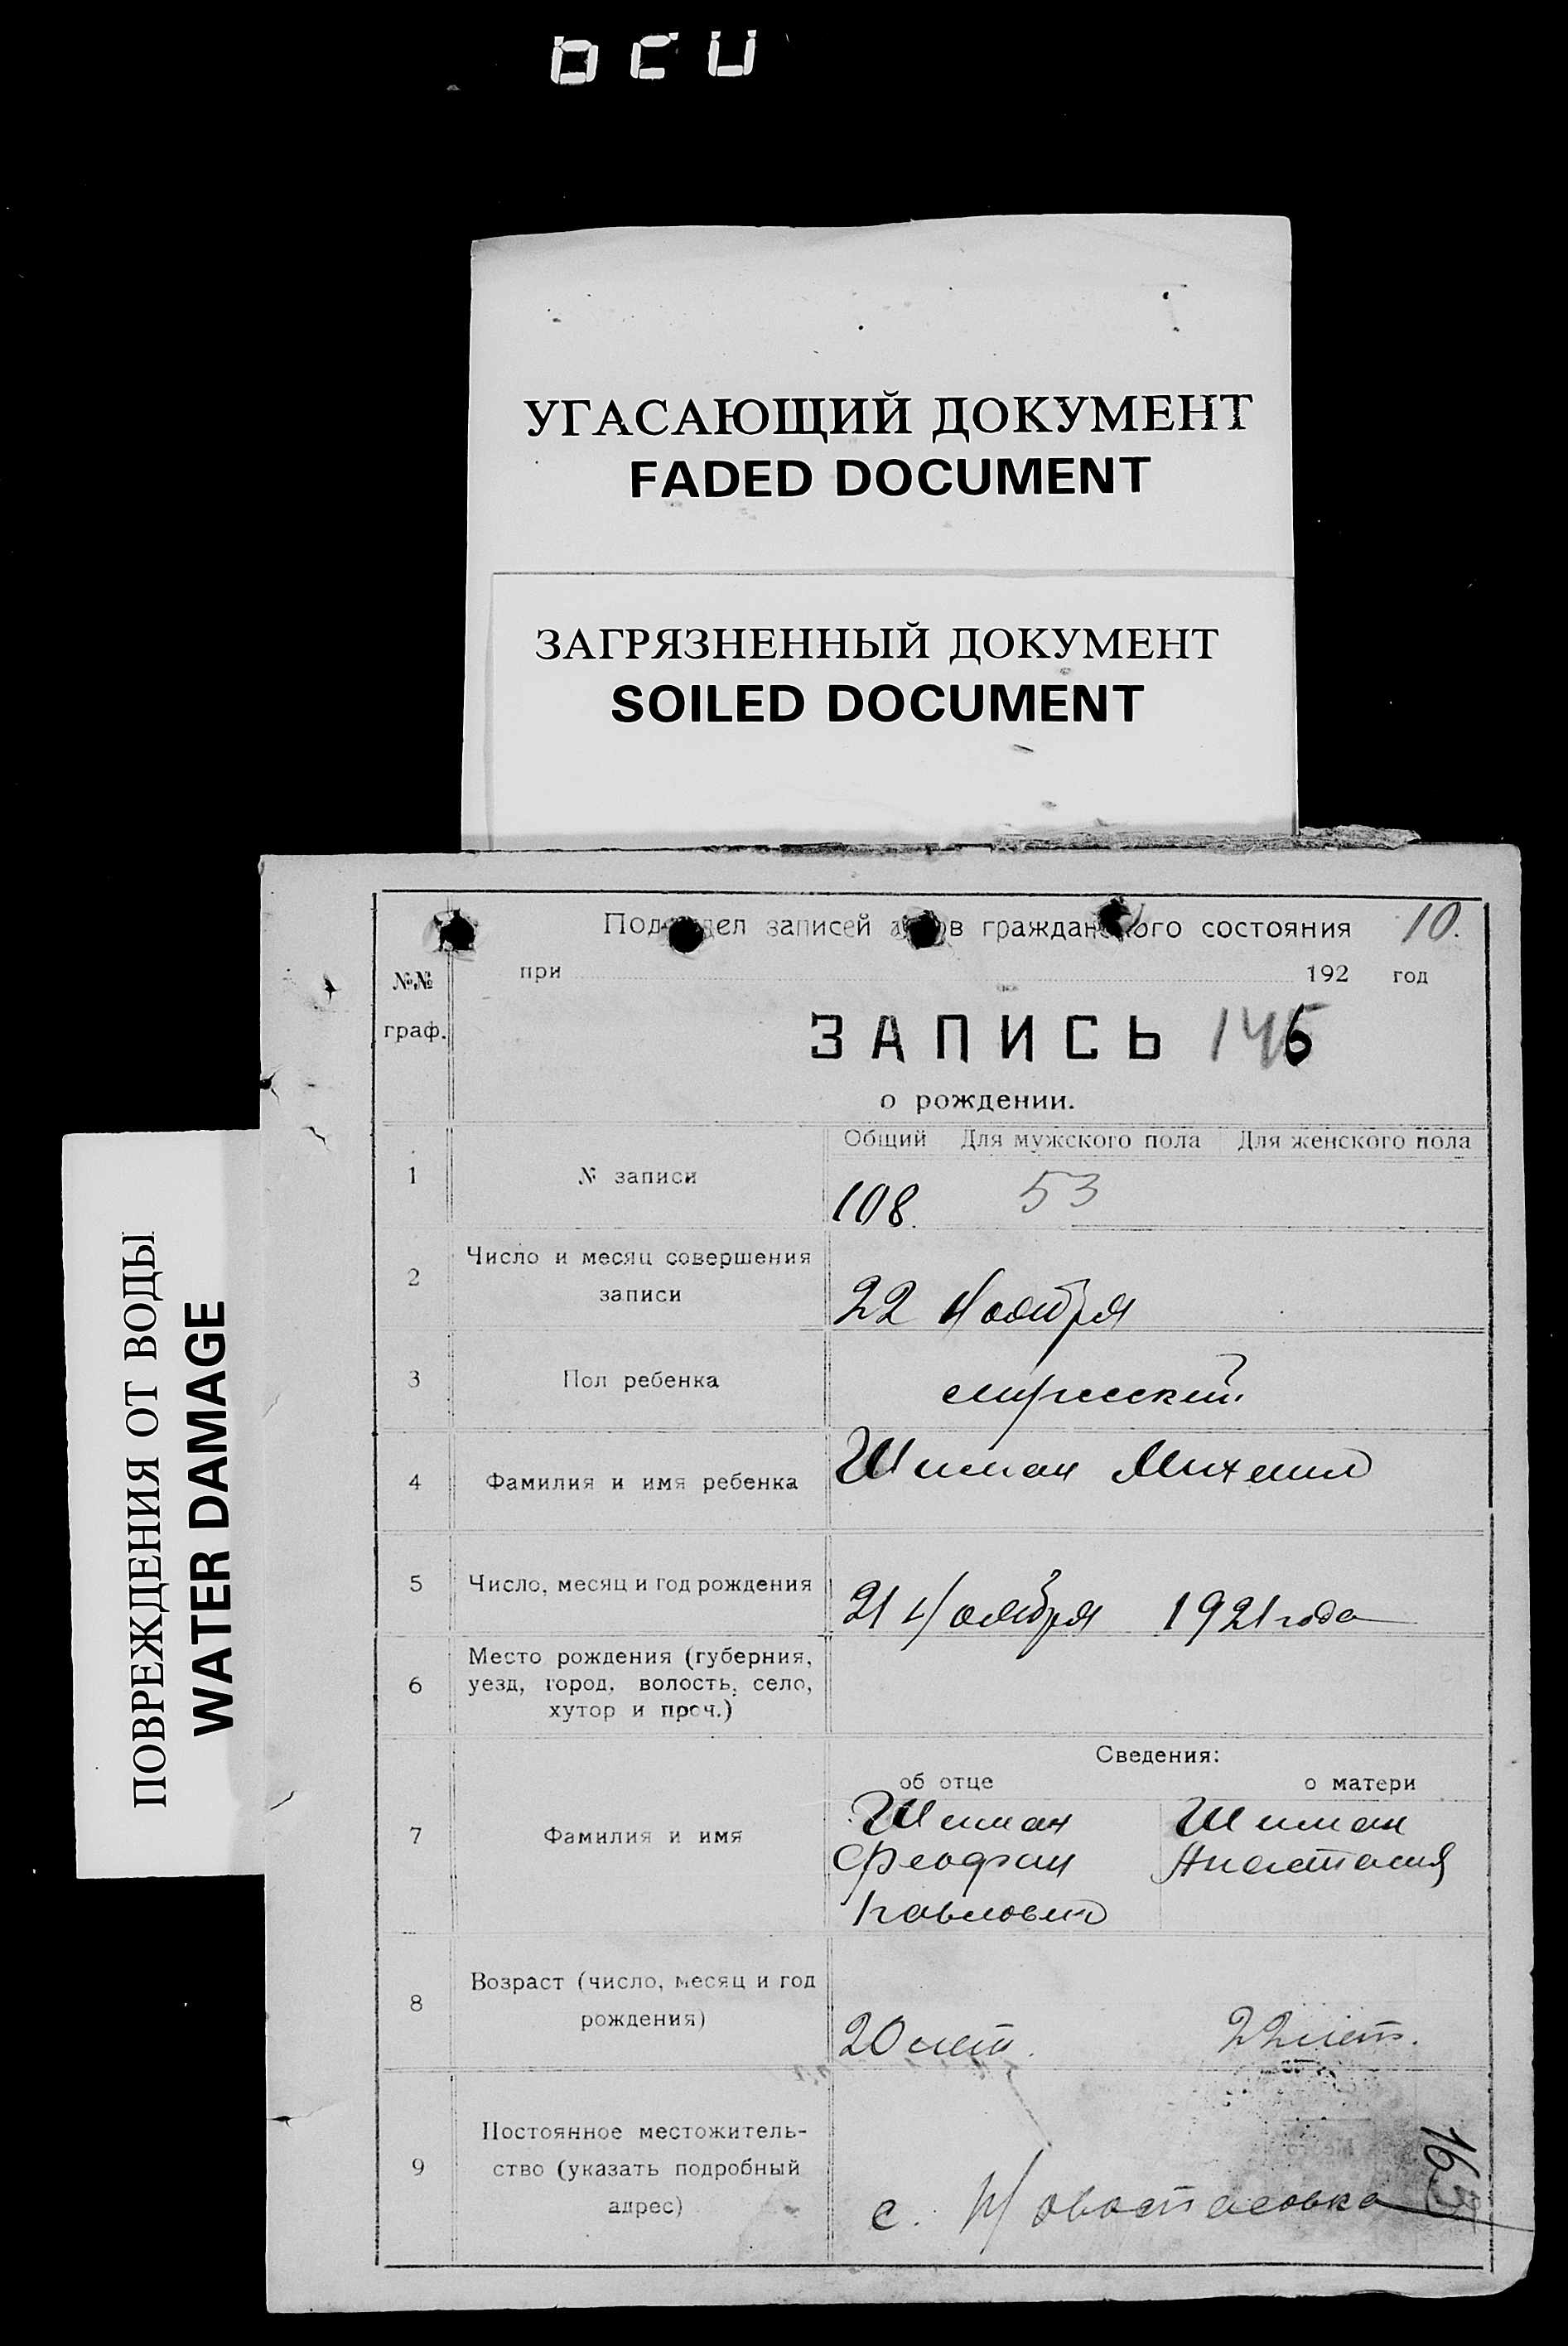 УГАСАЮЩИЙ ДОКУМЕНТ
FADED DOCUMENT
ЗАГРЯЗНЕННЫЙ ДОКУМЕНТ
SOILED DOCUMENT
ПОВРЕЖДЕНИЯ ОТ ВОДЫ
WATER DAMAGE
записей гражданского состояния 10.
№№ при 192 год
граф.
ЗАПИСЬ 146
о рождении.
Общий Для мужского пола Для женского пола
1 № записи 108. 53
2 Число и месяц совершения
записи 22 Ноября
3 Пол ребенка мужеский
4 Фамилия и имя ребенка Шиман Михаил
5 Число, месяц и год рождения 21 Ноября 1921 года
6 Место рождения (губерния,
уезд, город, волость, село,
хутор и проч.)
Сведения:
об отце о матери
7 Фамилия и имя Шиман Шиман
Феофан Анастасия
Павлович
8 Возраст (число, месяц и год
рождения) 20 лет. 22 лет.
9 Постоянное местожитель-
ство (указать подробный
адрес) с. Новостасовка